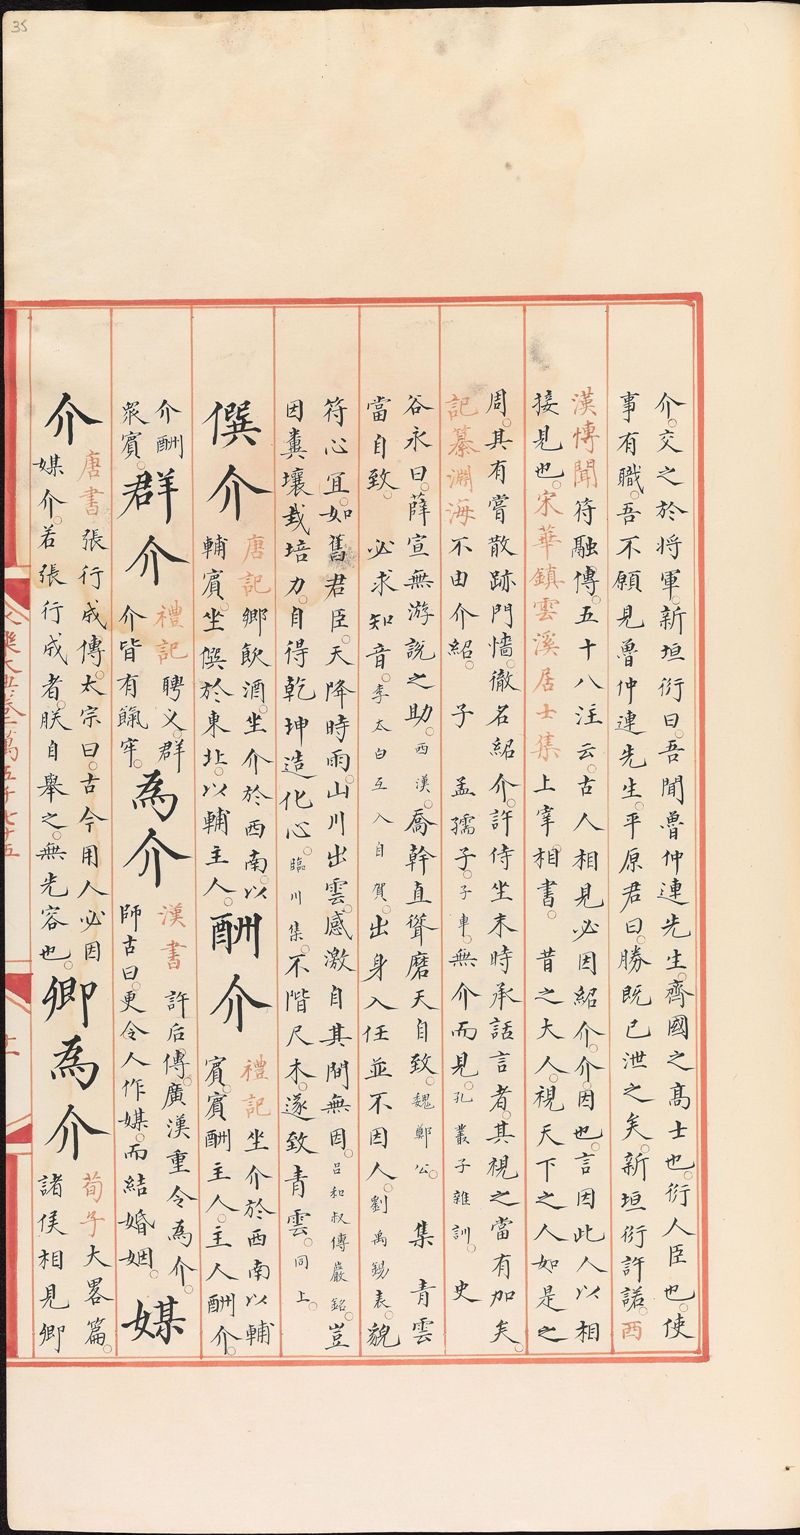 35
介。交之於將軍。新垣衍曰。吾聞魯仲連先生。齊國之高士也。衍人臣也。使
事有職。吾不願見魯仲連先生。平原君曰。勝既已泄之矣。新垣衍許諾。西
漢愽聞符融傳。五十八注云。古人相見必因紹介。介。因也。言因此人以相
接見也。宋華鎮雲溪居士集上宰相書。昔之大人。視天下之人如是之
周。其有嘗散跡門墻。徹名紹介。許侍坐末時承話言者。其視之當有加矣。
記纂淵海不由介紹。子 孟孺子。子車。無介而見。孔叢子雜訓。史
谷永曰。薛宣無游說之助。西漢。喬幹直聳磨天自致。魏鄭公。集 青雲
當自致。必求知音。李太白互入自賀。出身入任並不因人。劉禹錫表。貌
符心宜。如舊君臣。天降時雨。山川出雲。感激自其間無因。呂和叔傅巖銘。豈
因糞壤栽培力。自得乾坤造化心。臨川集。不階尺木。遂致青雲。同上。
僎介
唐記鄉飲酒。坐介於西南。以
輔賓。坐僎於東北。以輔主人。
酬介
禮記坐介於西南以輔
賓。賓酬主人。主人酬介。
介酬
眾賓。
群介
禮記聘義。群
介皆有餼牢。
為介
漢書許后傳。廣漢重令為介。
師古曰。更令人作媒。而結婚姻。
媒
介
唐書張行成傳。太宗曰。古今用人必因
媒介。若張行成者。朕自舉之。無先容也。
卿為介
荀子大畧篇。
諸侯相見卿